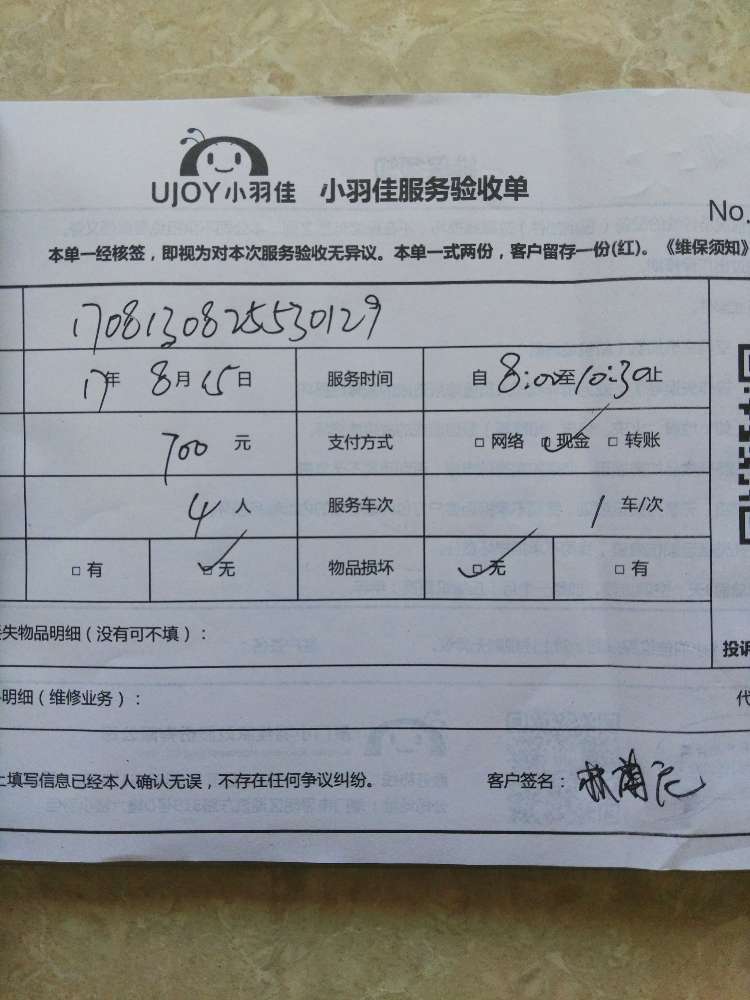 UJOY小羽佳 小羽佳服务验收单
No.
本单一经核签，即视为对本次服务验收无异议。本单一式两份，客户留存一份(红)。《维保须知》
1708130825530129
17年 8月15日 服务时间 自 8:00至10:30止
700 元 支付方式 □ 网络 □ 现金 □ 转账
4人 服务车次 1 车/次
□ 有 □ 无 物品损坏 □ 无 □ 有
失物品明细（没有可不填）：
投诉
明细（维修业务）：
代
上填写信息已经本人确认无误，不存在任何争议纠纷。 客户签名：